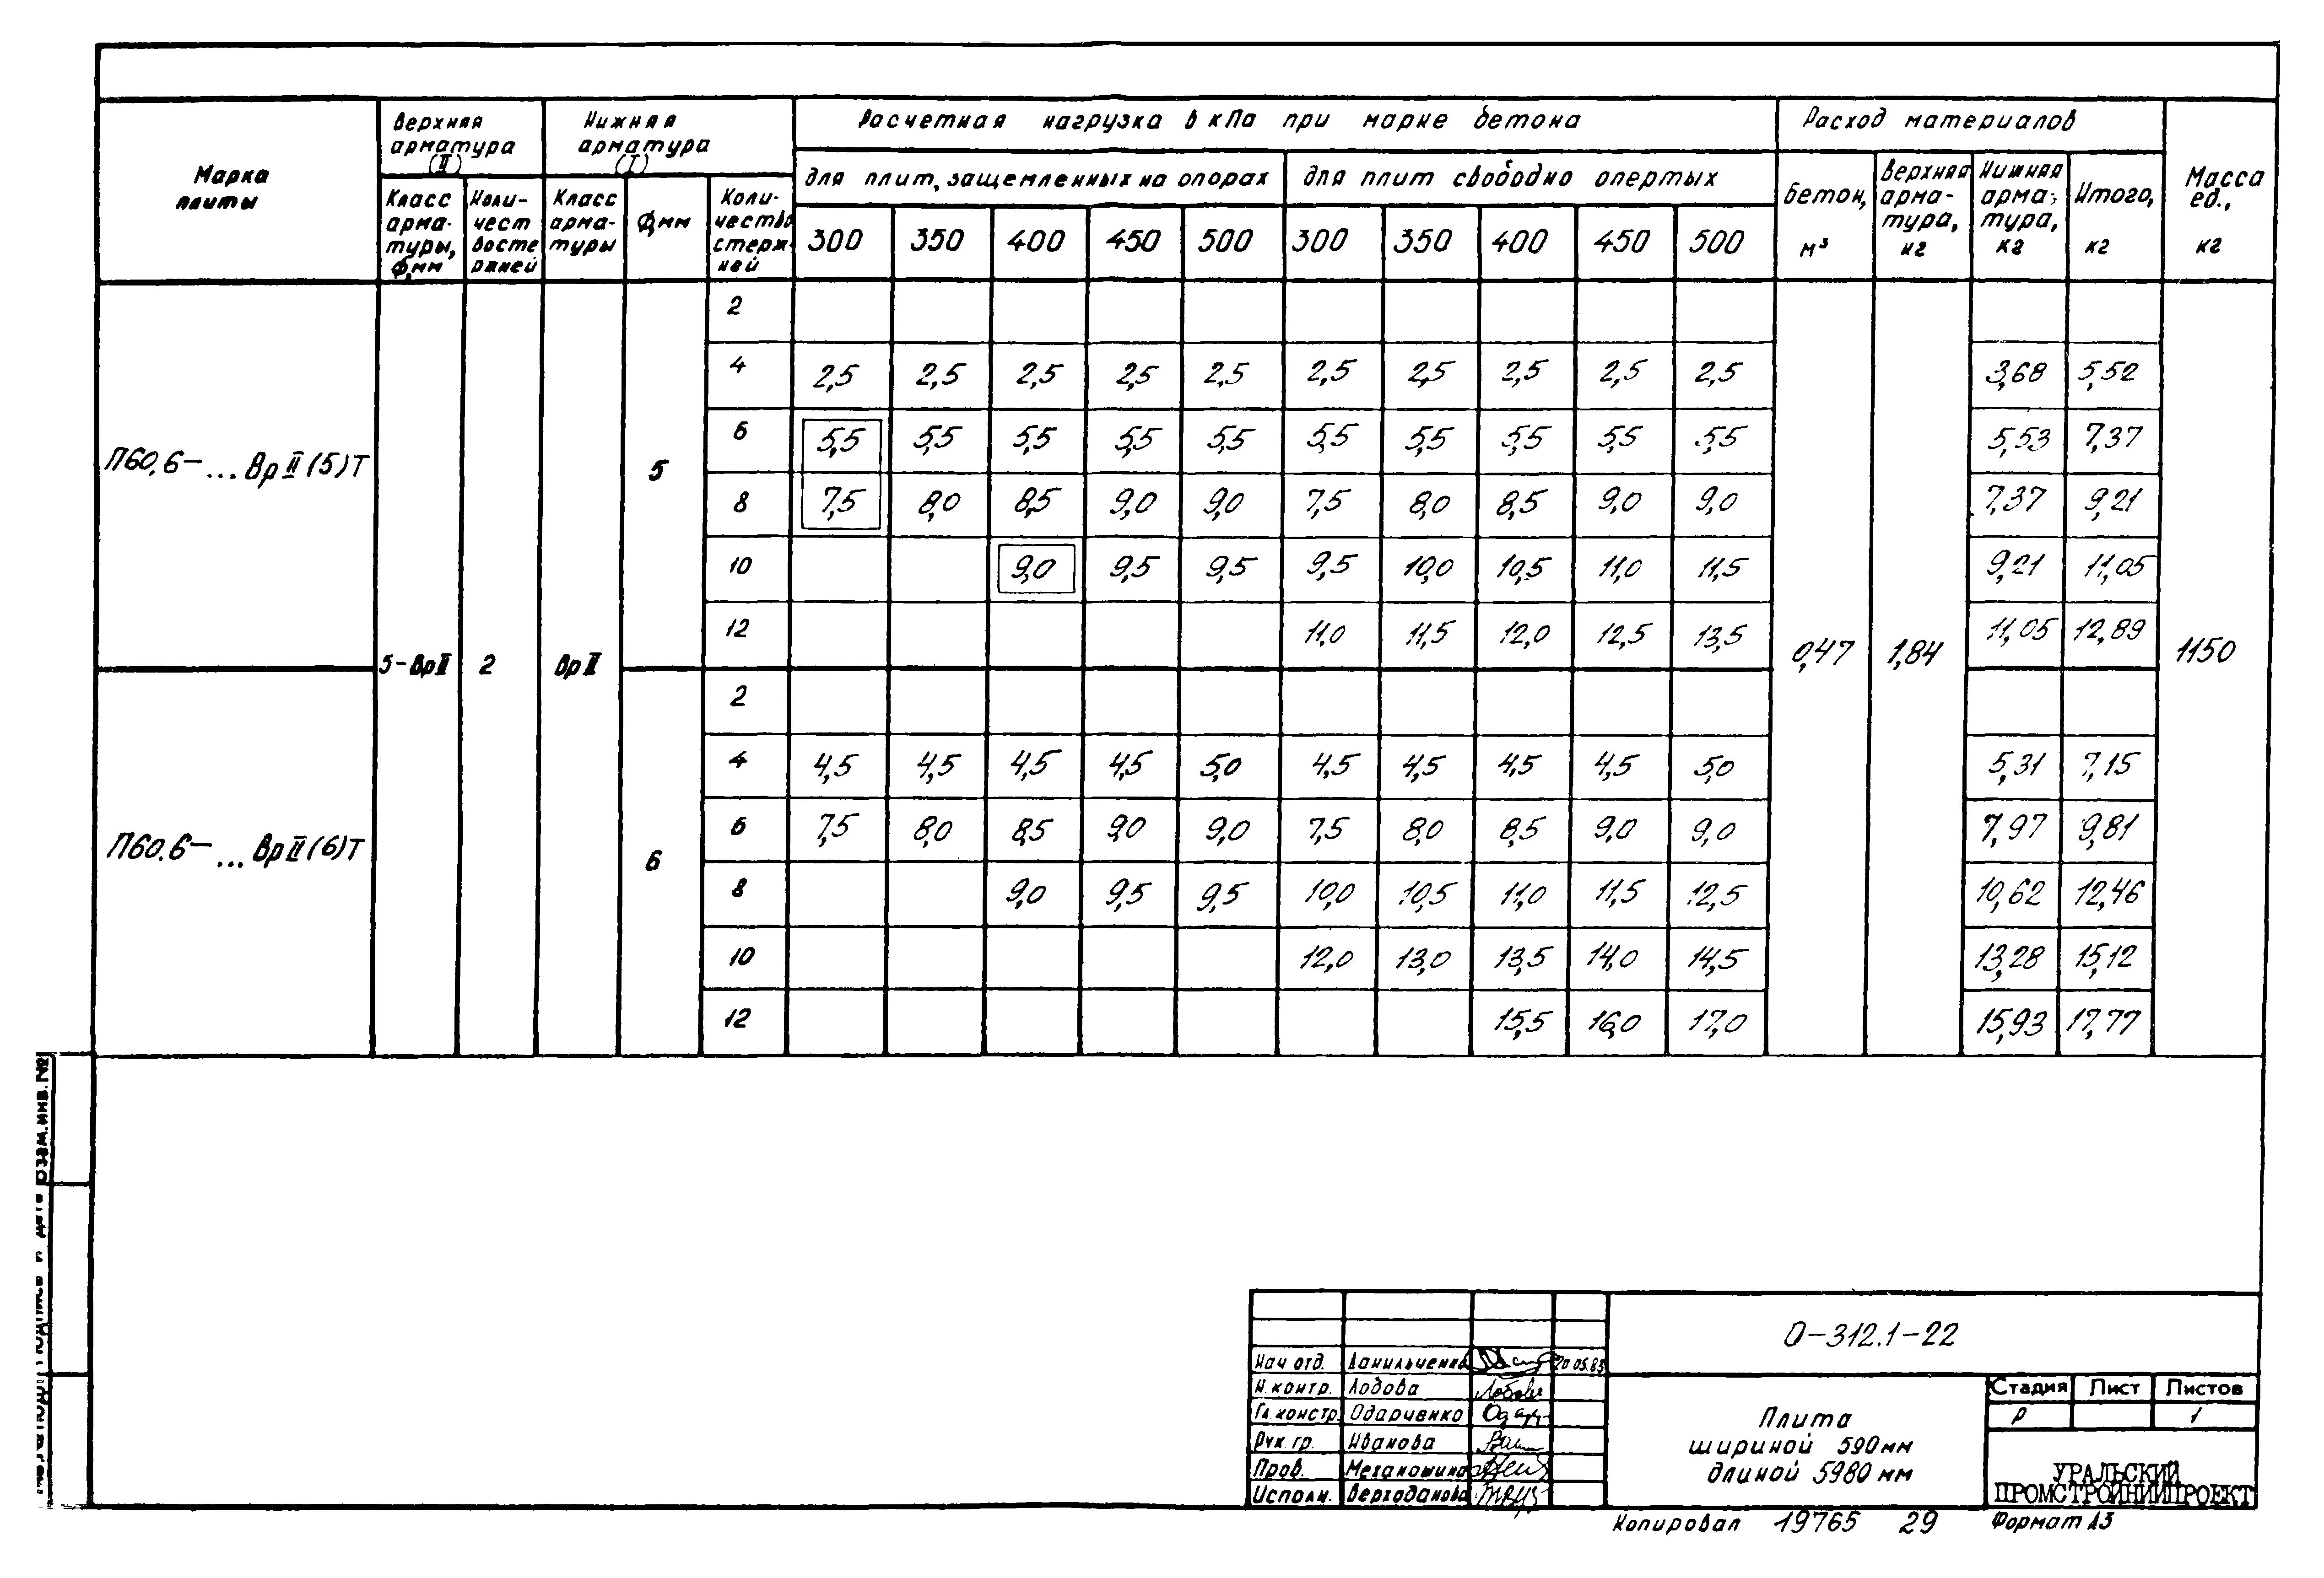 Расчетная нагрузка в кПа при марке бетона
Расход материалов
Верхняя арматура (II)
Нижняя арматура (I)
Марка плиты
для плит, защемленных на опорах
для плит свободно опертых
Бетон, м³
Верхняя арма-тура, кг
Нижняя арма-тура, кг
Итого, кг
Масса ед., кг
Класс арма-туры, Ф,мм
Коли-чест восте ржней
Класс арма-туры
Ф,мм
Коли-чество стерж-ней
300 350 400 450 500 300 350 400 450 500
2
4 2,5 2,5 2,5 2,5 2,5 2,5 2,5 2,5 2,5 2,5 3,68 5,52
6 5,5 5,5 5,5 5,5 5,5 5,5 5,5 5,5 5,5 5,5 5,53 7,37
П60,6-...ВрII(5)Т 5
8 7,5 8,0 8,5 9,0 9,0 7,5 8,0 8,5 9,0 9,0 7,37 9,21
10 9,0 9,5 9,5 9,5 10,0 10,5 11,0 11,5 9,21 11,05
12 11,0 11,5 12,0 12,5 13,5 11,05 12,89
5-ВрII 2 ВрII 0,47 1,84 1150
2
4 4,5 4,5 4,5 4,5 5,0 4,5 4,5 4,5 4,5 5,0 5,31 7,15
6 7,5 8,0 8,5 9,0 9,0 7,5 8,0 8,5 9,0 9,0 7,97 9,81
П60.6-...ВрII(6)Т 6
8 9,0 9,5 9,5 10,0 10,5 11,0 11,5 12,5 10,62 12,46
10 12,0 13,0 13,5 14,0 14,5 13,28 15,12
12 15,5 16,0 17,0 15,93 17,77
Взам.инв.№
О-312.1-22
Нач отд. Данильченко 20.05.83
Н.контр. Лобова
Гл.констр. Одарченко
Рук.гр. Иванова
Пров. Механошина
Исполн. Верходанова
Плита
шириной 590мм
длиной 5980 мм
Стадия Лист Листов
Р 1
УРАЛЬСКИЙ
ПРОМСТРОЙНИИПРОЕКТ
Копировал 19765 29 Формат А3